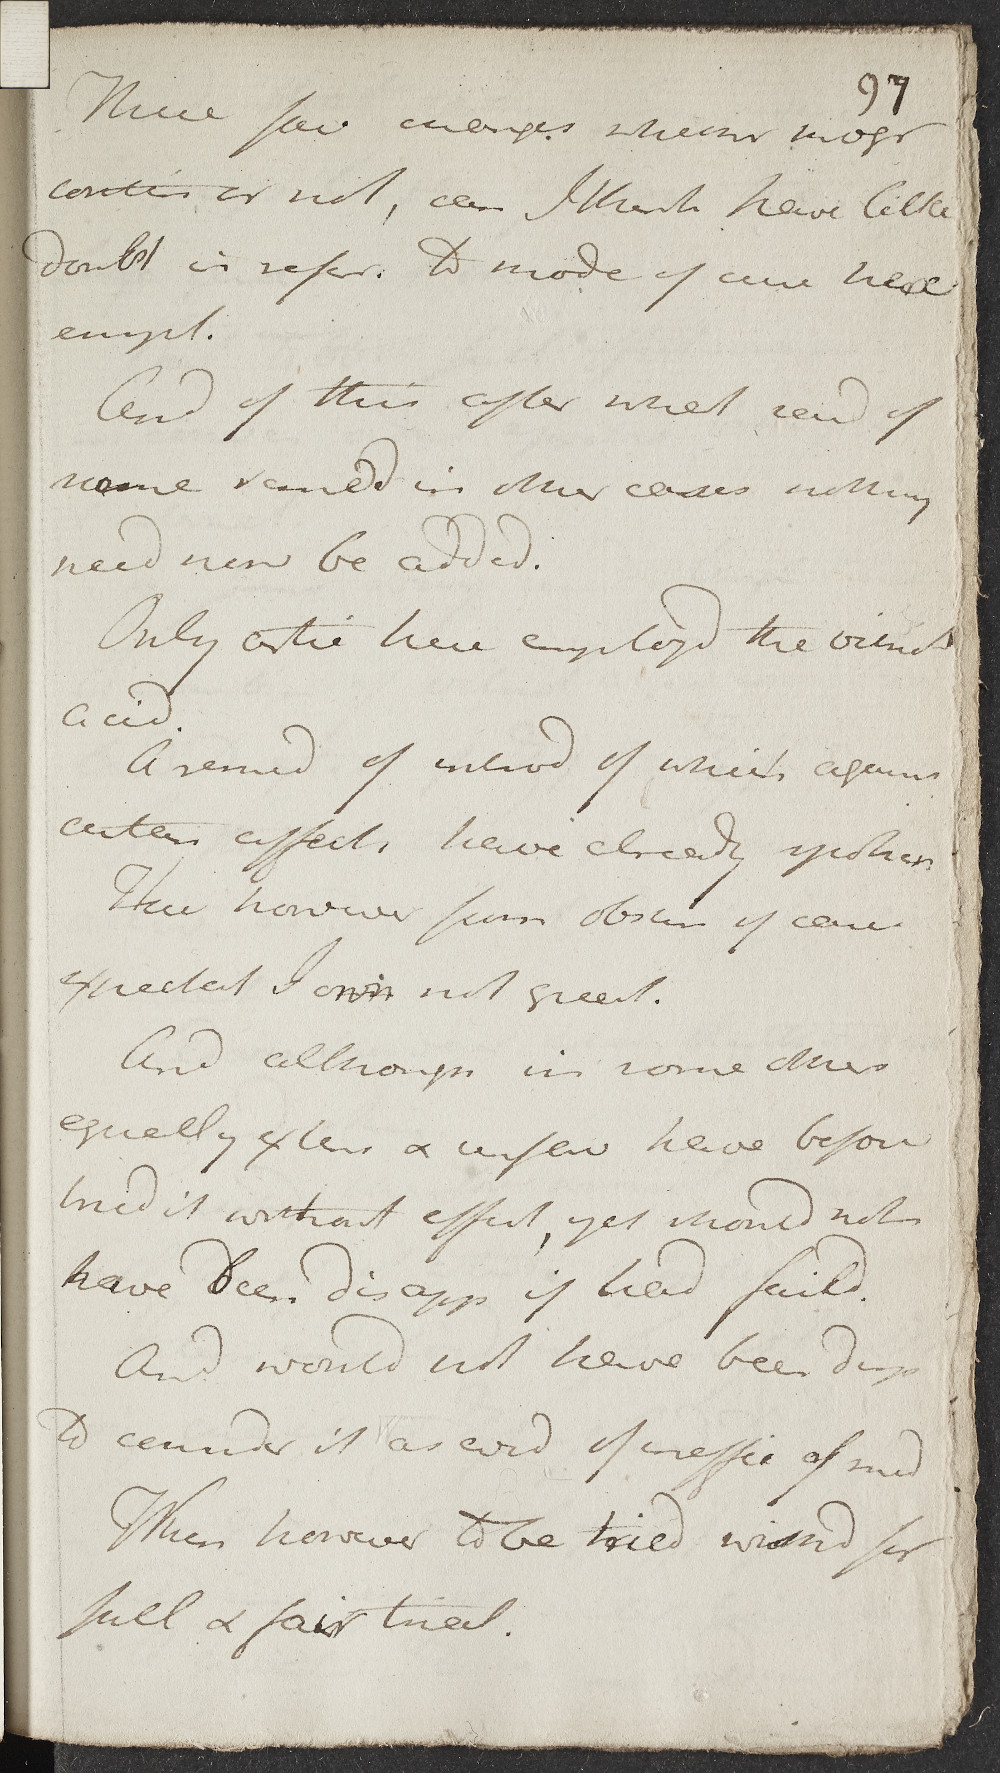 97
These few averages whether mogr
contin or not, can I think have little
doubt in refer. to mode of cure here
empt.
And of this after what said of
same remed in other cases nothing
need now be added.
Only artic here employd the
acid.
A remed of introd of which against
certain affects have already spoken
however from obser of
expectat I own not great.
And although in some others
equally exten & have before
tried it without effect, yet should not
have been disapp if had faild.
And would not have been disp
to consider it as evid of ineffic of med
When however to be tried wishd for
full & fair trial.